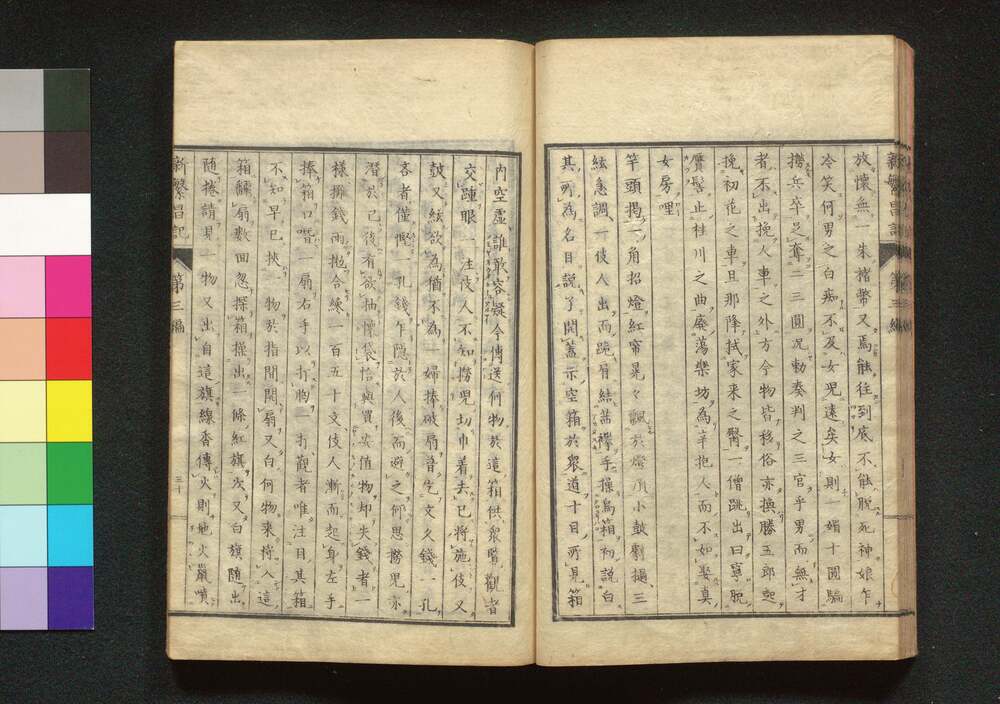 放懷無一朱楮幣又焉能往到底不能脫死神娘乍
冷笑何男之白痴不及女兒遠矣女則一媚十圓騙
撈兵卒足奪二三圓況勅奏判之三官乎男而無才
者不出挽人車之外方今物皆移俗亦換勝五郎起
挽初花之車且那降拭家来之臀一僧跳出曰寧脫
贋髻止桂川之曲奏蕩樂坊為羊抱人而不如娶真
女房哩
竿頭掲一角招燈紅帘晃々飄於燈前小鼓劇撾三
絃急調一伎人出而跪肩結襷手操為箱初説白
其所為名目説了開蓋示空箱於衆道十目所見箱
内空虛誰敢容疑今傳送何物於這箱供衆覽觀者
交踵眼一注伎人不知撈兒切巾着去已將施伎又
鼓又絃欲為猶不為一婦捧破扇普乞文久錢一孔
吝者僅慳一孔錢乍隱於人後而避之何思撈兒亦
潜於己後有欲抽懷袋恰與買安值物却失錢者一
樣擲錢雨抛合緣一百五十文伎人漸而起身左手
捧箱口喈一扇右手以打胸一打觀者唯注目其箱
不知早已挾一物於指間開扇又白何物来待入這
箱飜扇數回忽探箱操出一條紅旗次又白旗随出
随捲請易一物又出自這旗線香傳火則地火嚴噴
新繁昌記
第三編
三十